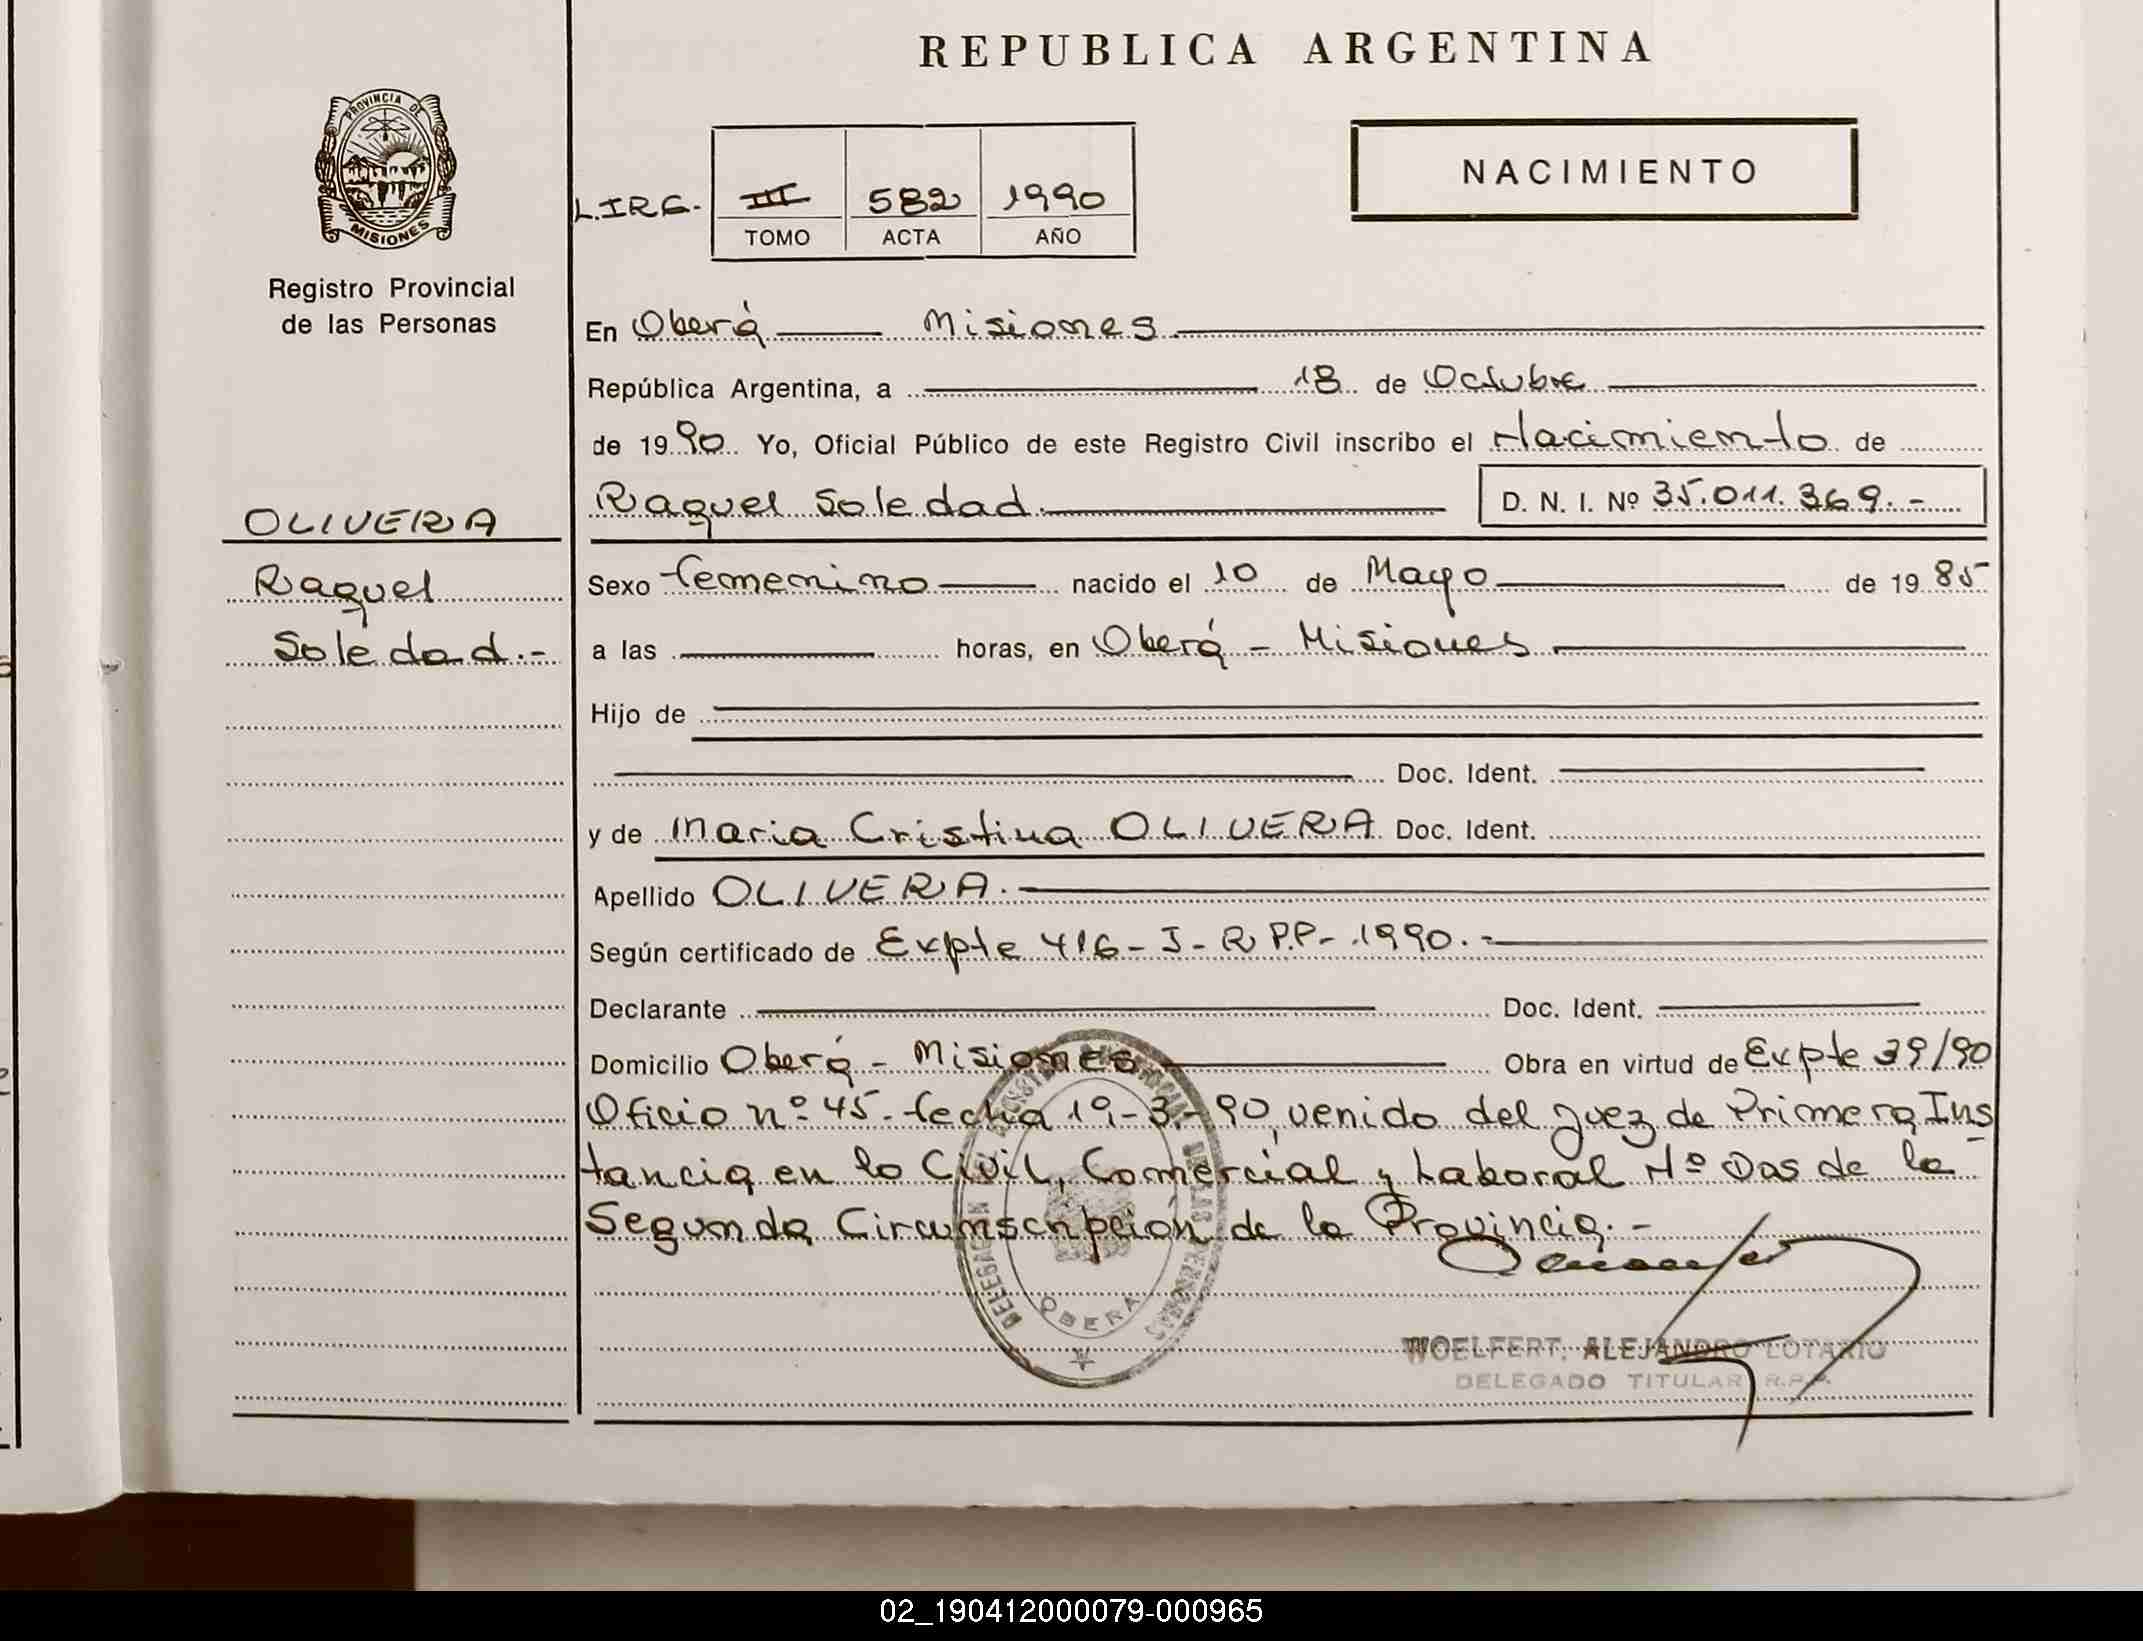 REPUBLICA ARGENTINA
PROVINCIA DE
MISIONES
Registro Provincial
de las Personas
NACIMIENTO
L.IRG. III 582 1990
TOMO ACTA AÑO
En Oberá Misiones
República Argentina, a 18 de Octubre
de 1990 Yo, Oficial Público de este Registro Civil inscribo el Nacimiento de
Raquel Soledad D. N. I. Nº 35.011.369.-
OLIVERA
Raquel
Soledad.-
Sexo femenino nacido el 10 de Mayo de 1985
a las horas, en Oberá - Misiones
Hijo de
Doc. Ident.
y de Maria Cristina OLIVERA Doc. Ident.
Apellido OLIVERA.
Según certificado de Expte 416-J-R.P.P-1990.-
Declarante Doc. Ident.
Domicilio Oberá - Misiones Obra en virtud de Expte 39/90
Oficio nº 45. fecha 1º-3-90, venido del Juez de Primera Ins
tancia en lo Civil, Comercial y Laboral Nº Dos de la
Segunda Circunscripción de la Provincia.-
DELEGACION OBERA
WOELFERT, ALEJANDRO LOTARIO
DELEGADO TITULAR R.P.P.
02_190412000079-000965